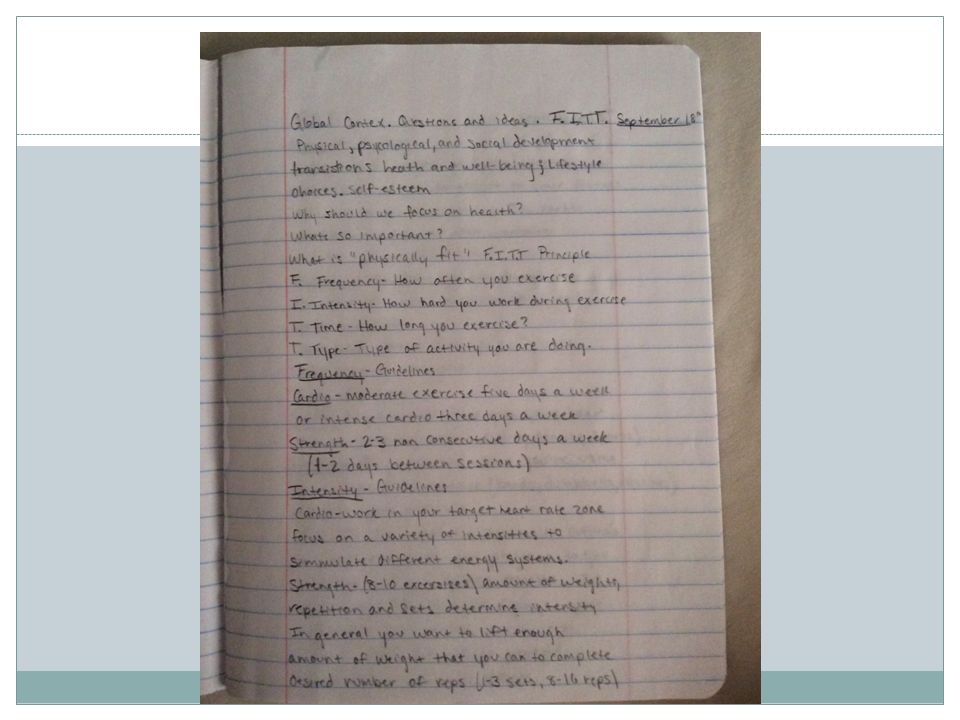 Global Contex. Questions and ideas. F.I.T.T. September 18th
Physical, psycological, and social development
transistions heath and well-being & Lifestyle
choices. self-esteem
Why should we focus on health?
Whats so important?
What is "physically fit" F.I.T.T Principle
F. Frequency- How often you exercise
I. Intensity- How hard you work during exercise
T. Time - How long you exercise?
T. Type- Type of activity you are doing.
Frequency - Guidelines
Cardio - moderate exercise five days a week
or intense cardio three days a week
Strength - 2-3 non consecutive days a week
(1-2 days between sessions)
Intensity - Guidelines
Cardio-work in your target heart rate zone
focus on a variety of intensities to
simmulate different energy systems.
Strength- (8-10 excersises) amount of weights,
repetition and sets determine intensity
In general you want to lift enough
amount of weight that you can to complete
desired number of reps (1-3 sets, 8-16 reps)